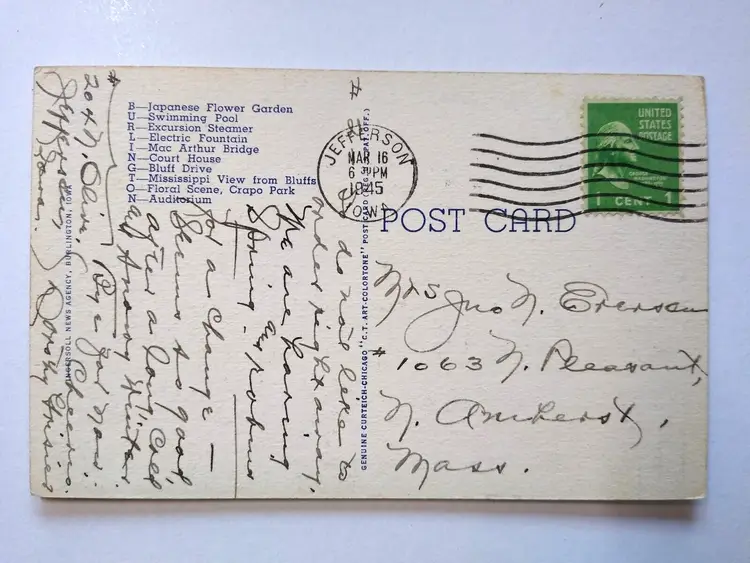 B—Japanese Flower Garden
U—Swimming Pool
R—Excursion Steamer
L—Electric Fountain
I—Mac Arthur Bridge
N—Court House
G—Bluff Drive
T—Mississippi View from Bluffs
O—Floral Scene, Crapo Park
N—Auditorium
JEFFERSON
MAR 16
6 PM
1945
IOWA
UNITED
STATES
POSTAGE
1 CENT 1
POST CARD
Mrs Jno N.
# 1063 N. Pleasant,
N. Amherst,
Mass.
GENUINE CURTEICH-CHICAGO "C.T. ART-COLORTONE" POST CARD (REG. U.S. PAT. OFF.)
INGERSOLL NEWS AGENCY, BURLINGTON, IOWA
#
do not like to
order right away.
We are having
Spring & robins
for a change —
Seems so good,
after a long cold
snowy Winter
Bye for now:
Cheerio.
Dorothy
#
204 N. Olive,
Jefferson,
Iowa.